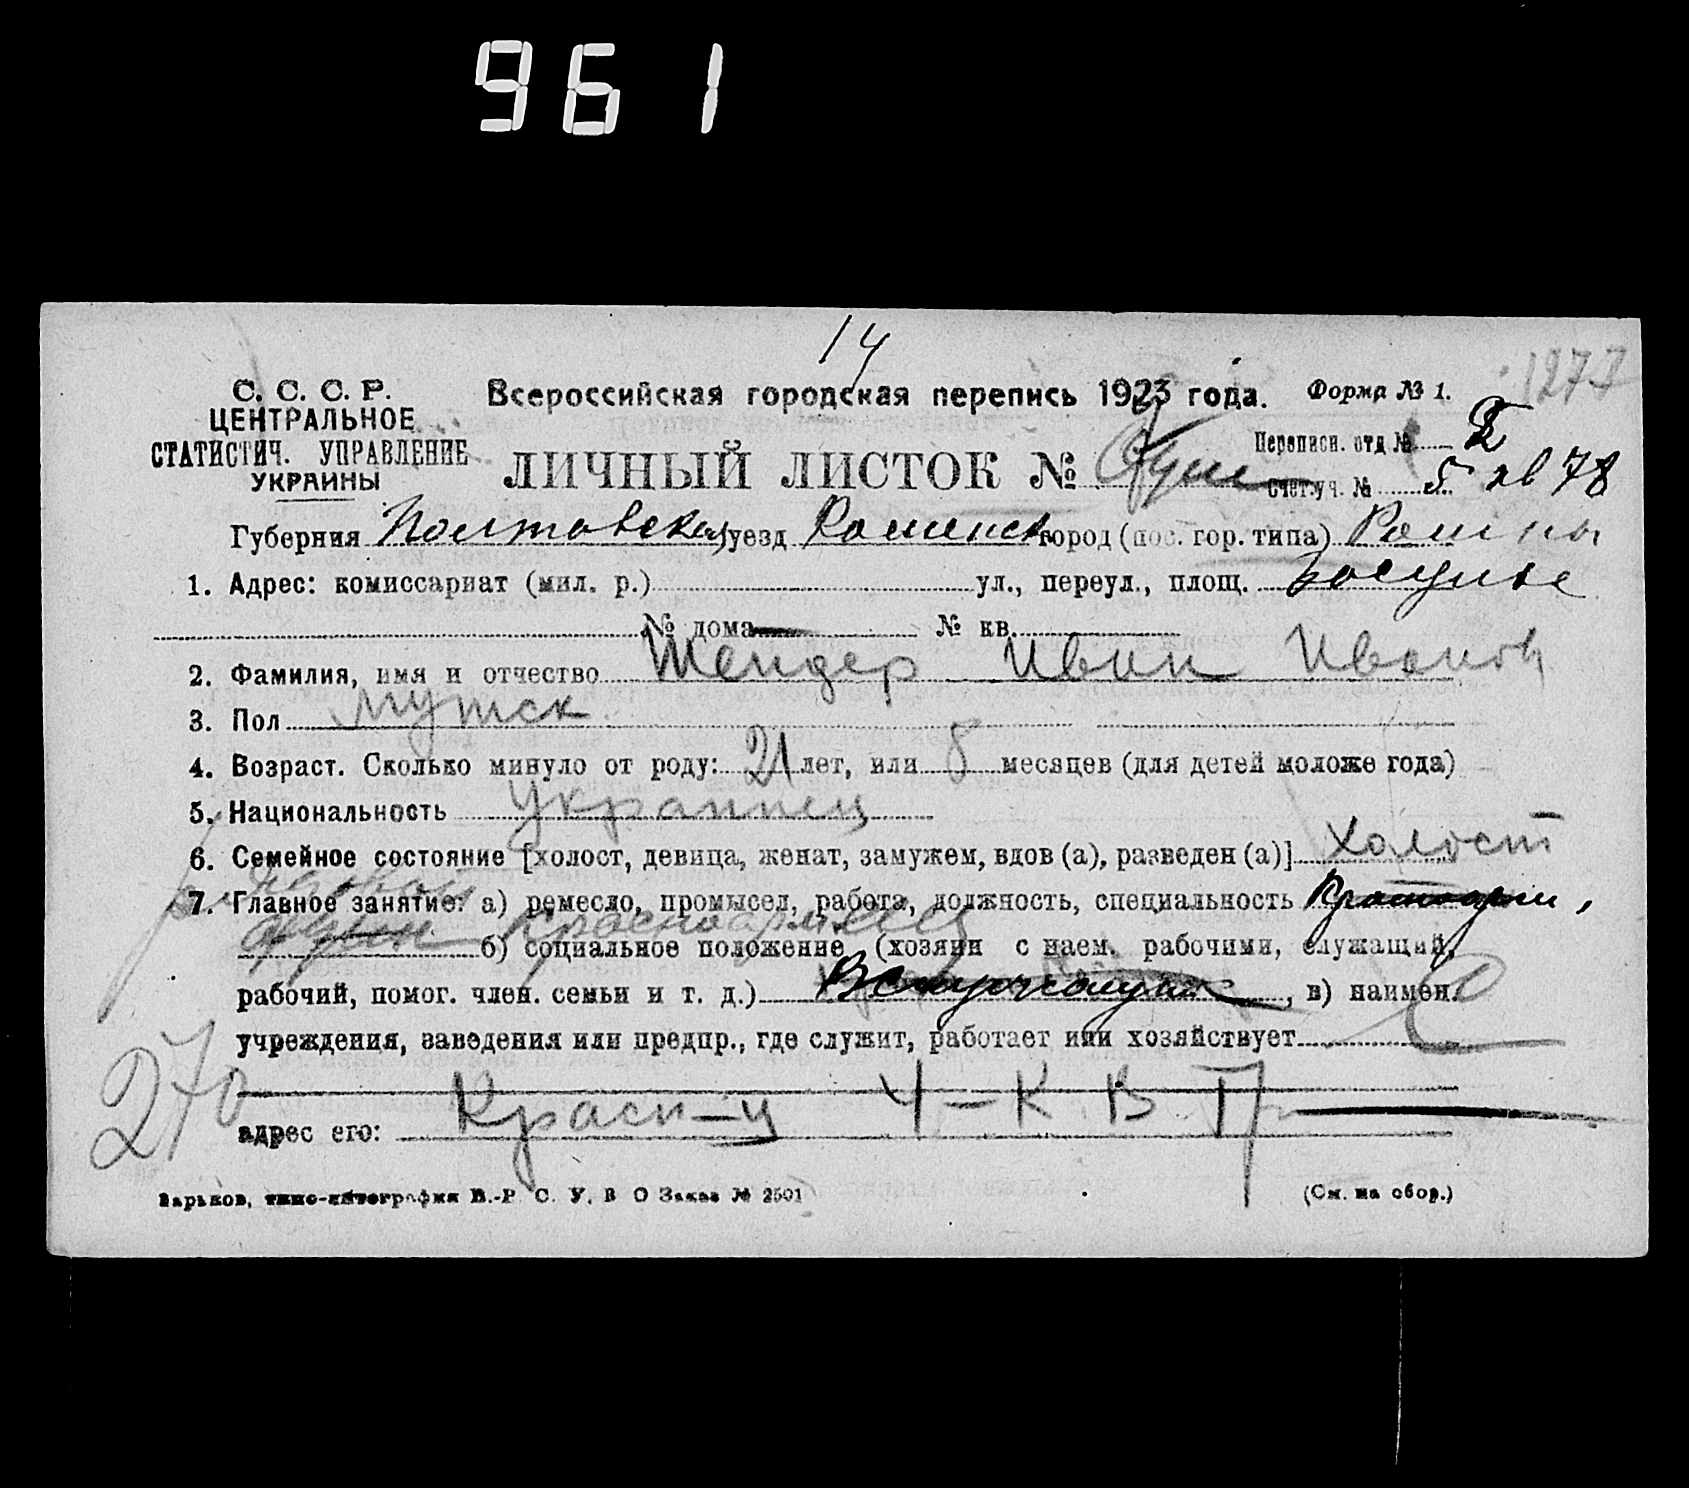 961
14
С. С. С. Р.
ЦЕНТРАЛЬНОЕ
СТАТИСТИЧ. УПРАВЛЕНИЕ
УКРАИНЫ
Всероссийская городская перепись 1923 года.
Форма № 1.
1277
ЛИЧНЫЙ ЛИСТОК №
Переписн. отд №
Счет.уч. № 5 кв 78
Губерния Полтовская уезд Роменск город (пос. гор. типа) Ромны
1. Адрес: комиссариат (мил. р.) ул., переул., площ.
№ дома № кв.
2. Фамилия, имя и отчество Шендер Иван Иванов
3. Пол мужск
4. Возраст. Сколько минуло от роду: 21 лет, или месяцев (для детей моложе года)
5. Национальность украинец
6. Семейное состояние [холост, девица, женат, замужем, вдов (а), разведен (а)] холост
7. Главное занятие: а) ремесло, промысел, работа, должность, специальность
красноармеец
б) социальное положение (хозяин с наем. рабочими, служащий,
рабочий, помог. член. семьи и т. д.) , в) наимен.
учреждения, заведения или предпр., где служит, работает или хозяйствует
270
адрес его: Красн-ц Ч-К В П
Харьков, типо-литография В.-Р. С. У. В О Заказ № 2501
(См. на обор.)